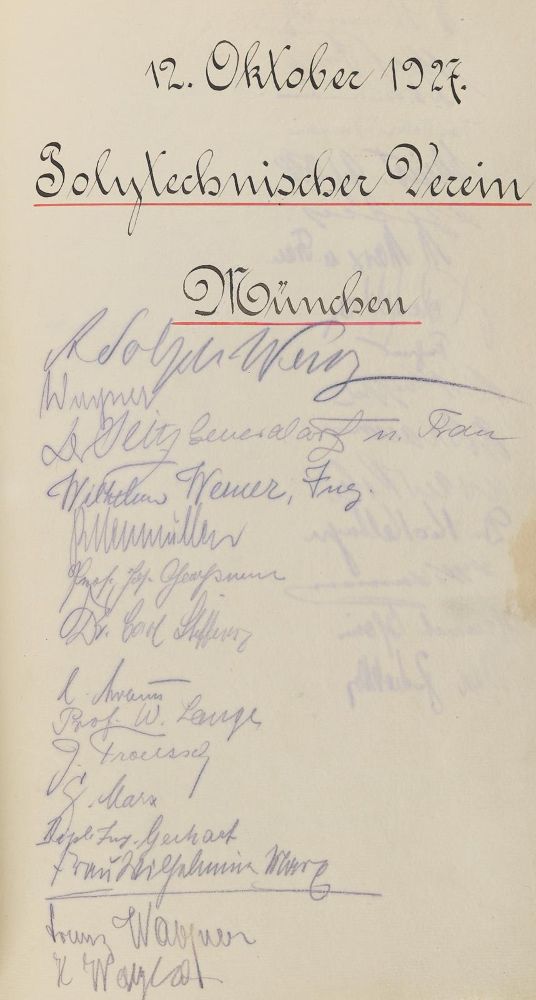 12. Oktober 1927.
Polytechnischer Verein
München
Adolph
Wagner
Dr Seitz Generalarzt u. Frau
Wilhelm Werner, Ing.
Prof.
Dr. Carl
Prof. W. Lange
J. Troeltsch
G. Marx
Dipl. Ing. Gerhart
Frau Wilhelmine Merz
Franz Wagner